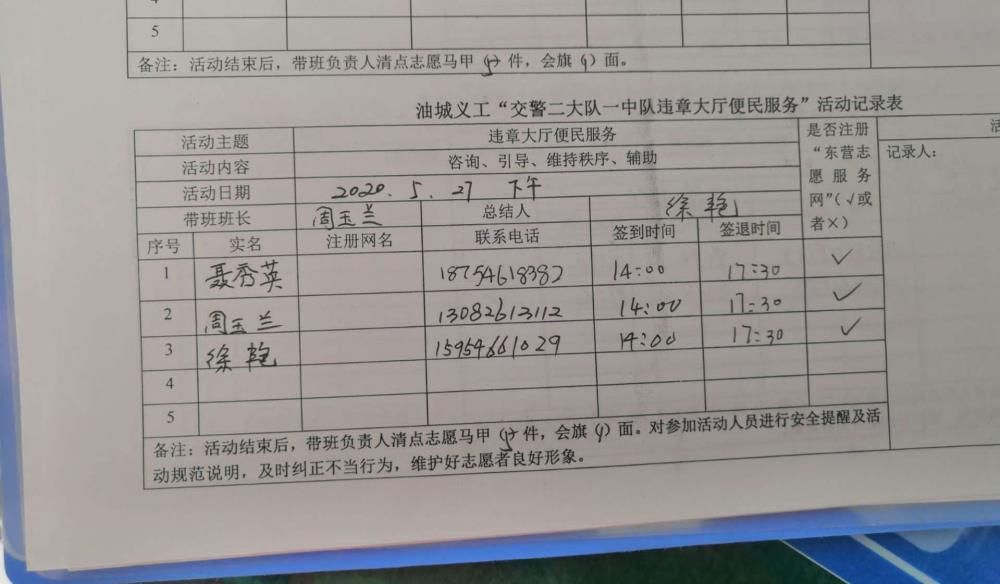 4
5
备注：活动结束后，带班负责人清点志愿马甲（5）件，会旗（1）面。
油城义工“交警二大队一中队违章大厅便民服务”活动记录表
活动主题 违章大厅便民服务 是否注册“东营志愿服务网”（√或者×） 活
活动内容 咨询、引导、维持秩序、辅助 记录人：
活动日期 2020.5.27 下午
带班班长 周玉兰 总结人 徐艳
序号 实名 注册网名 联系电话 签到时间 签退时间
1 聂秀英 18754618382 14:00 17:30 ✓
2 周玉兰 13082613112 14:00 17:30 ✓
3 徐艳 15954661029 14:00 17:30 ✓
4
5
备注：活动结束后，带班负责人清点志愿马甲（5）件，会旗（1）面。对参加活动人员进行安全提醒及活
动规范说明，及时纠正不当行为，维护好志愿者良好形象。